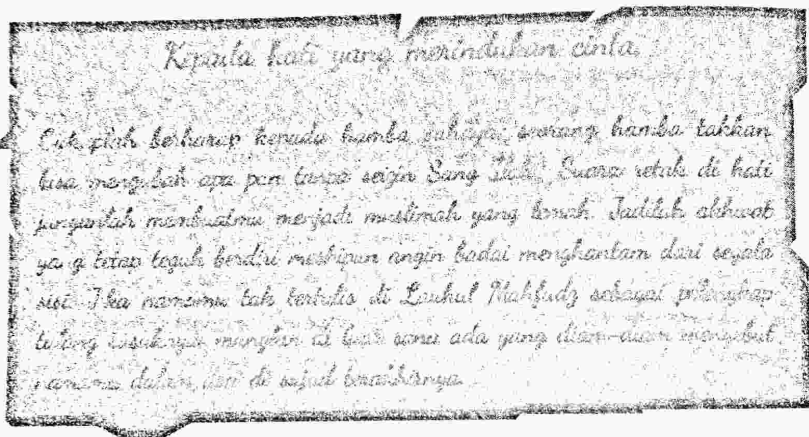 Kepada hati yang merindukan cinta,
Cukuplah berharap kepada hamba sahaja, seorang hamba takkan
bisa mengubah apa pun tanpa seizin Sang Ilahi. Suara retak di hati
janganlah membuatmu menjadi muslimah yang lemah. Jadilah akhwat
yang tetap teguh berdiri meskipun angin badai menghantam dari segala
sisi. Jika namamu tak tertulis di Lauhul Mahfudz sebagai pelengkap
tulang rusuknya mungkin di luar sana ada yang diam-diam menyebut
namamu dalam doa di sujud terakhirnya.